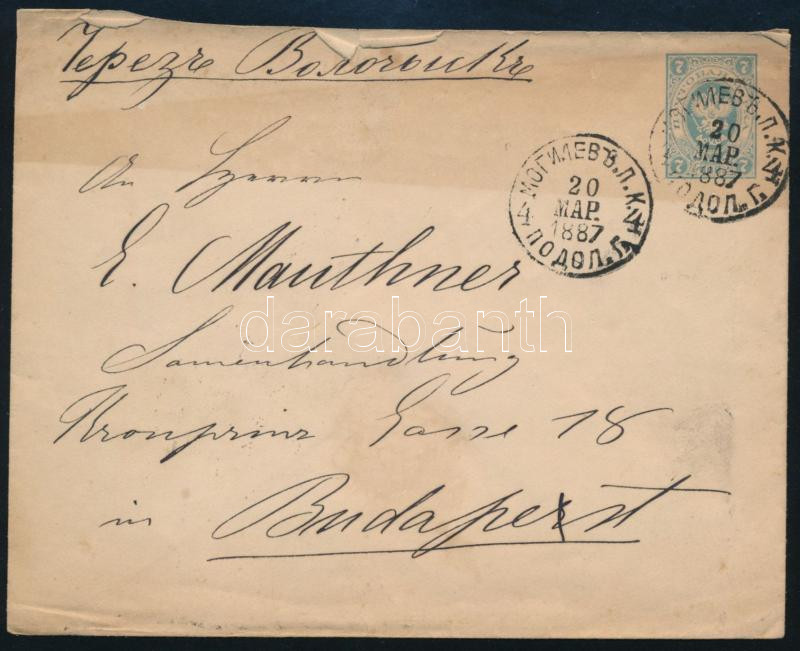 Черезъ Волочыскъ
7 7
7 7
МОГИЛЕВЪ.П.К.
20
МАР.
1887
4 4
ПОДОЛ.Г.
МОГИЛЕВЪ.П.К.
20
МАР.
1887
4
ПОДОЛ.Г.
An Herrn
E. Mauthner
Samenhandlung
Kronprinz Gasse 18
in Budapest
darabanth